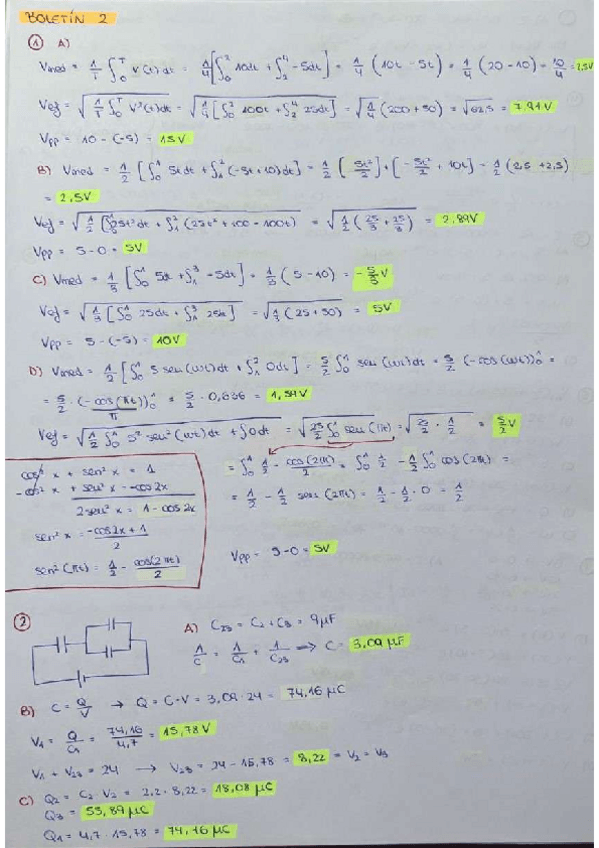 BOLETÍN 2
① A)
Vmed = 1/T ∫₀ᵀ V(t) dt = 1/4 [∫₀² 10dt + ∫₂⁴ -5dt] = 1/4 (10t - 5t) = 1/4 (20-10) = 10/4 = 2,5V
Vef = √(1/T ∫₀ᵀ V²(t)dt) = √(1/4 [∫₀² 100t + ∫₂⁴ 25dt]) = √(1/4 (200+50)) = √62,5 = 7,91V
Vpp = 10 - (-5) = 15V
B) Vmed = 1/2 [∫₀¹ 5tdt + ∫₁² (-5t+10)dt] = 1/2 [5t²/2] + [-5t²/2 + 10t] = 1/2 (2,5 + 2,5)
= 2,5V
Vef = √(1/2 [∫₀¹ 25t²dt + ∫₁² (25t²+100-100t)]) = √(1/2 (25/3 + 25/3)) = 2,89V
Vpp = 5-0 = 5V
C) Vmed = 1/3 [∫₀¹ 5dt + ∫₁³ -5dt] = 1/3 (5-10) = -5/3 V
Vef = √(1/3 [∫₀¹ 25dt + ∫₁³ 25dt]) = √(1/3 (25+50)) = 5V
Vpp = 5-(-5) = 10V
D) Vmed = 1/2 [∫₀¹ 5 sen(wt)dt + ∫₁² 0dt] = 5/2 ∫₀¹ sen(wt)dt = 5/2 (-cos(wt))₀¹ =
= 5/2 · (-cos(πt)/π)₀¹ = 5/2 · 0,636 = 1,59V
Vef = √(1/2 ∫₀¹ 5² sen²(wt)dt + ∫0dt) = √(25/2 ∫₀¹ sen(πt)) = √(25/2 · 1/2) = 5/2 V
cos² x + sen² x = 1
-cos² x + sen² x = -cos2x
2sen² x = 1-cos2x
sen² x = (-cos2x+1)/2
sen²(πt) = 1/2 - cos(2πt)/2
= ∫₀¹ 1/2 - cos(2πt)/2 = ∫₀¹ 1/2 - 1/2 ∫₀¹ cos(2πt) =
= 1/2 - 1/2 sen(2πt) = 1/2 - 1/2 · 0 = 1/2
Vpp = 5-0 = 5V
② A) C₂₃ = C₂ + C₃ = 9μF
1/C = 1/C₁ + 1/C₂₃ → C = 3,09μF
B) C = Q/V → Q = C·V = 3,09·24 = 74,16 μC
V₁ = Q/C₁ = 74,16/4,7 = 15,78V
V₁ + V₂₃ = 24 → V₂₃ = 24 - 15,78 = 8,22 = V₂ = V₃
C) Q₂ = C₂·V₂ = 2,2·8,22 = 18,08 μC
Q₃ = 55,89 μC
Q₁ = 4,7·15,78 = 74,16 μC